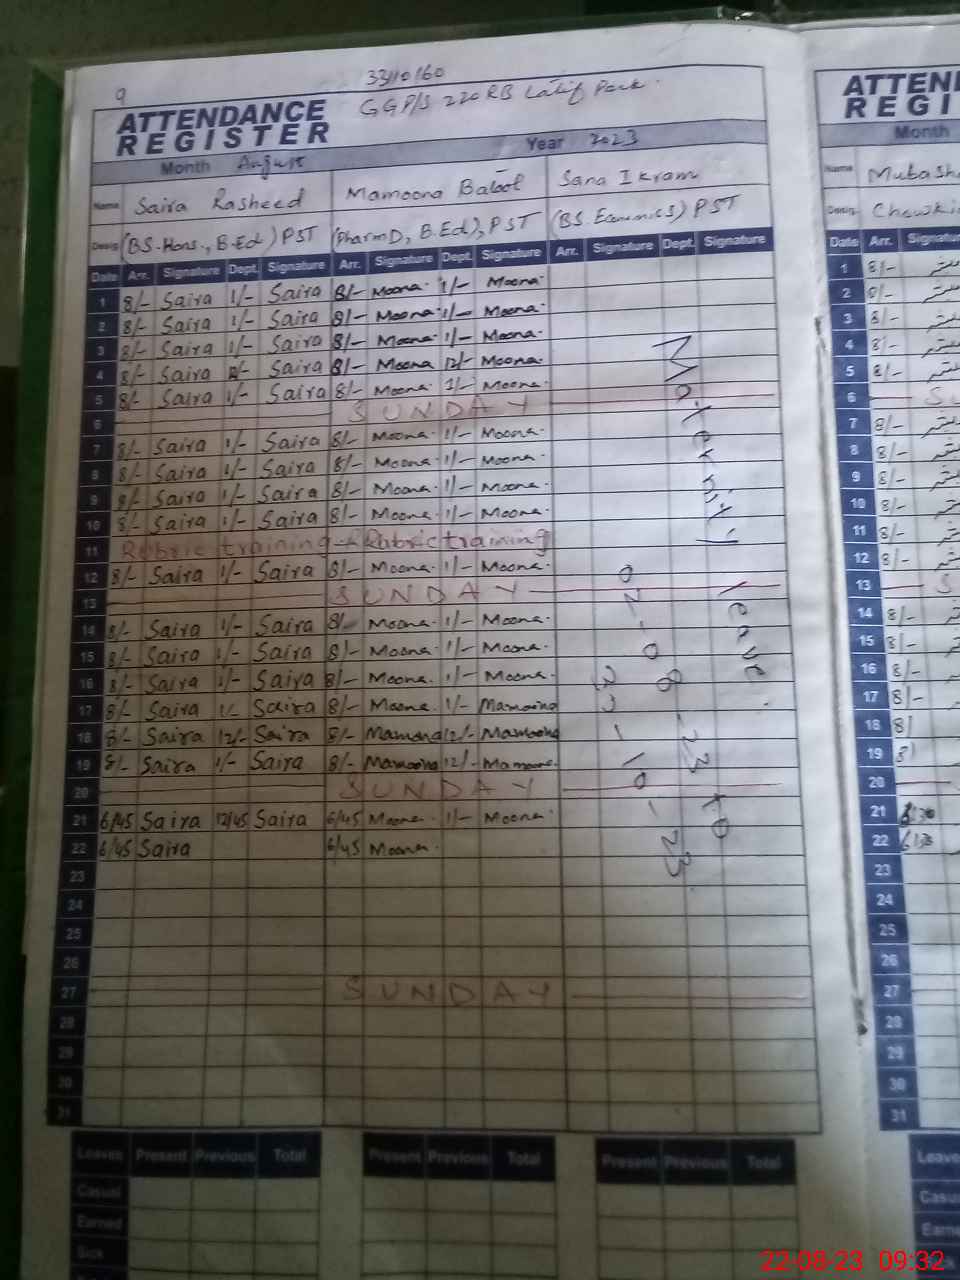 9
33110160
ATTENDANCE REGISTER GGP/S 220 RB Latif Park
Month August Year 2023
Name Saira Rasheed Mamoona Batool Sana Ikram
Desig (BS-Hons., B.Ed) PST (PharmD, B.Ed), PST (BS. Economics) PST
Date Arr. Signature Dept. Signature Arr. Signature Dept. Signature Arr. Signature Dept. Signature
1 8/- Saira 1/- Saira 8/- Moona. 1/- Moona.
2 8/- Saira 1/- Saira 8/- Moona. 1/- Moona.
3 8/- Saira 1/- Saira 8/- Moona. 1/- Moona.
4 8/- Saira 12/- Saira 8/- Moona 12/- Moona.
5 8/- Saira 1/- Saira 8/- Moona. 1/- Moona.
6 SUNDAY
7 8/- Saira 1/- Saira 8/- Moona. 1/- Moona.
8 8/- Saira 1/- Saira 8/- Moona. 1/- Moona.
9 8/- Saira 1/- Saira 8/- Moona. 1/- Moona.
10 8/- Saira 1/- Saira 8/- Moona. 1/- Moona.
11 Rubric training Rubric training
12 8/- Saira 1/- Saira 8/- Moona. 1/- Moona.
13 SUNDAY
14 8/- Saira 1/- Saira 8/- Moona. 1/- Moona.
15 8/- Saira 1/- Saira 8/- Moona. 1/- Moona.
16 8/- Saira 1/- Saira 8/- Moona. 1/- Moona.
17 8/- Saira 1/- Saira 8/- Moona. 1/- Mamoona
18 8/- Saira 12/- Saira 8/- Mamoona 12/- Mamoona
19 8/- Saira 1/- Saira 8/- Mamoona 12/- Mamoona.
20 SUNDAY
21 6/45 Saira 12/45 Saira 6/45 Moona. 1/- Moona.
22 6/45 Saira 6/45 Moona.
23
24
25
26
27 SUNDAY
28
29
30
31
Maternity leave.
-08-23 to
-10-23
Leaves Present Previous Total Present Previous Total Present Previous Total
Casual
Earned
Sick
Month
Name
Desig.
Date Arr.
1 8/-
2 8/-
3 8/-
4 8/-
5 8/-
6
7 8/-
8 8/-
9 8/-
10 8/-
11 8/-
12 8/-
13
14 8/-
15 8/-
16 8/-
17 8/-
18 8/
19 8/
20
21
22
23
24
25
26
27
28
29
30
31
22-08-23 09:32